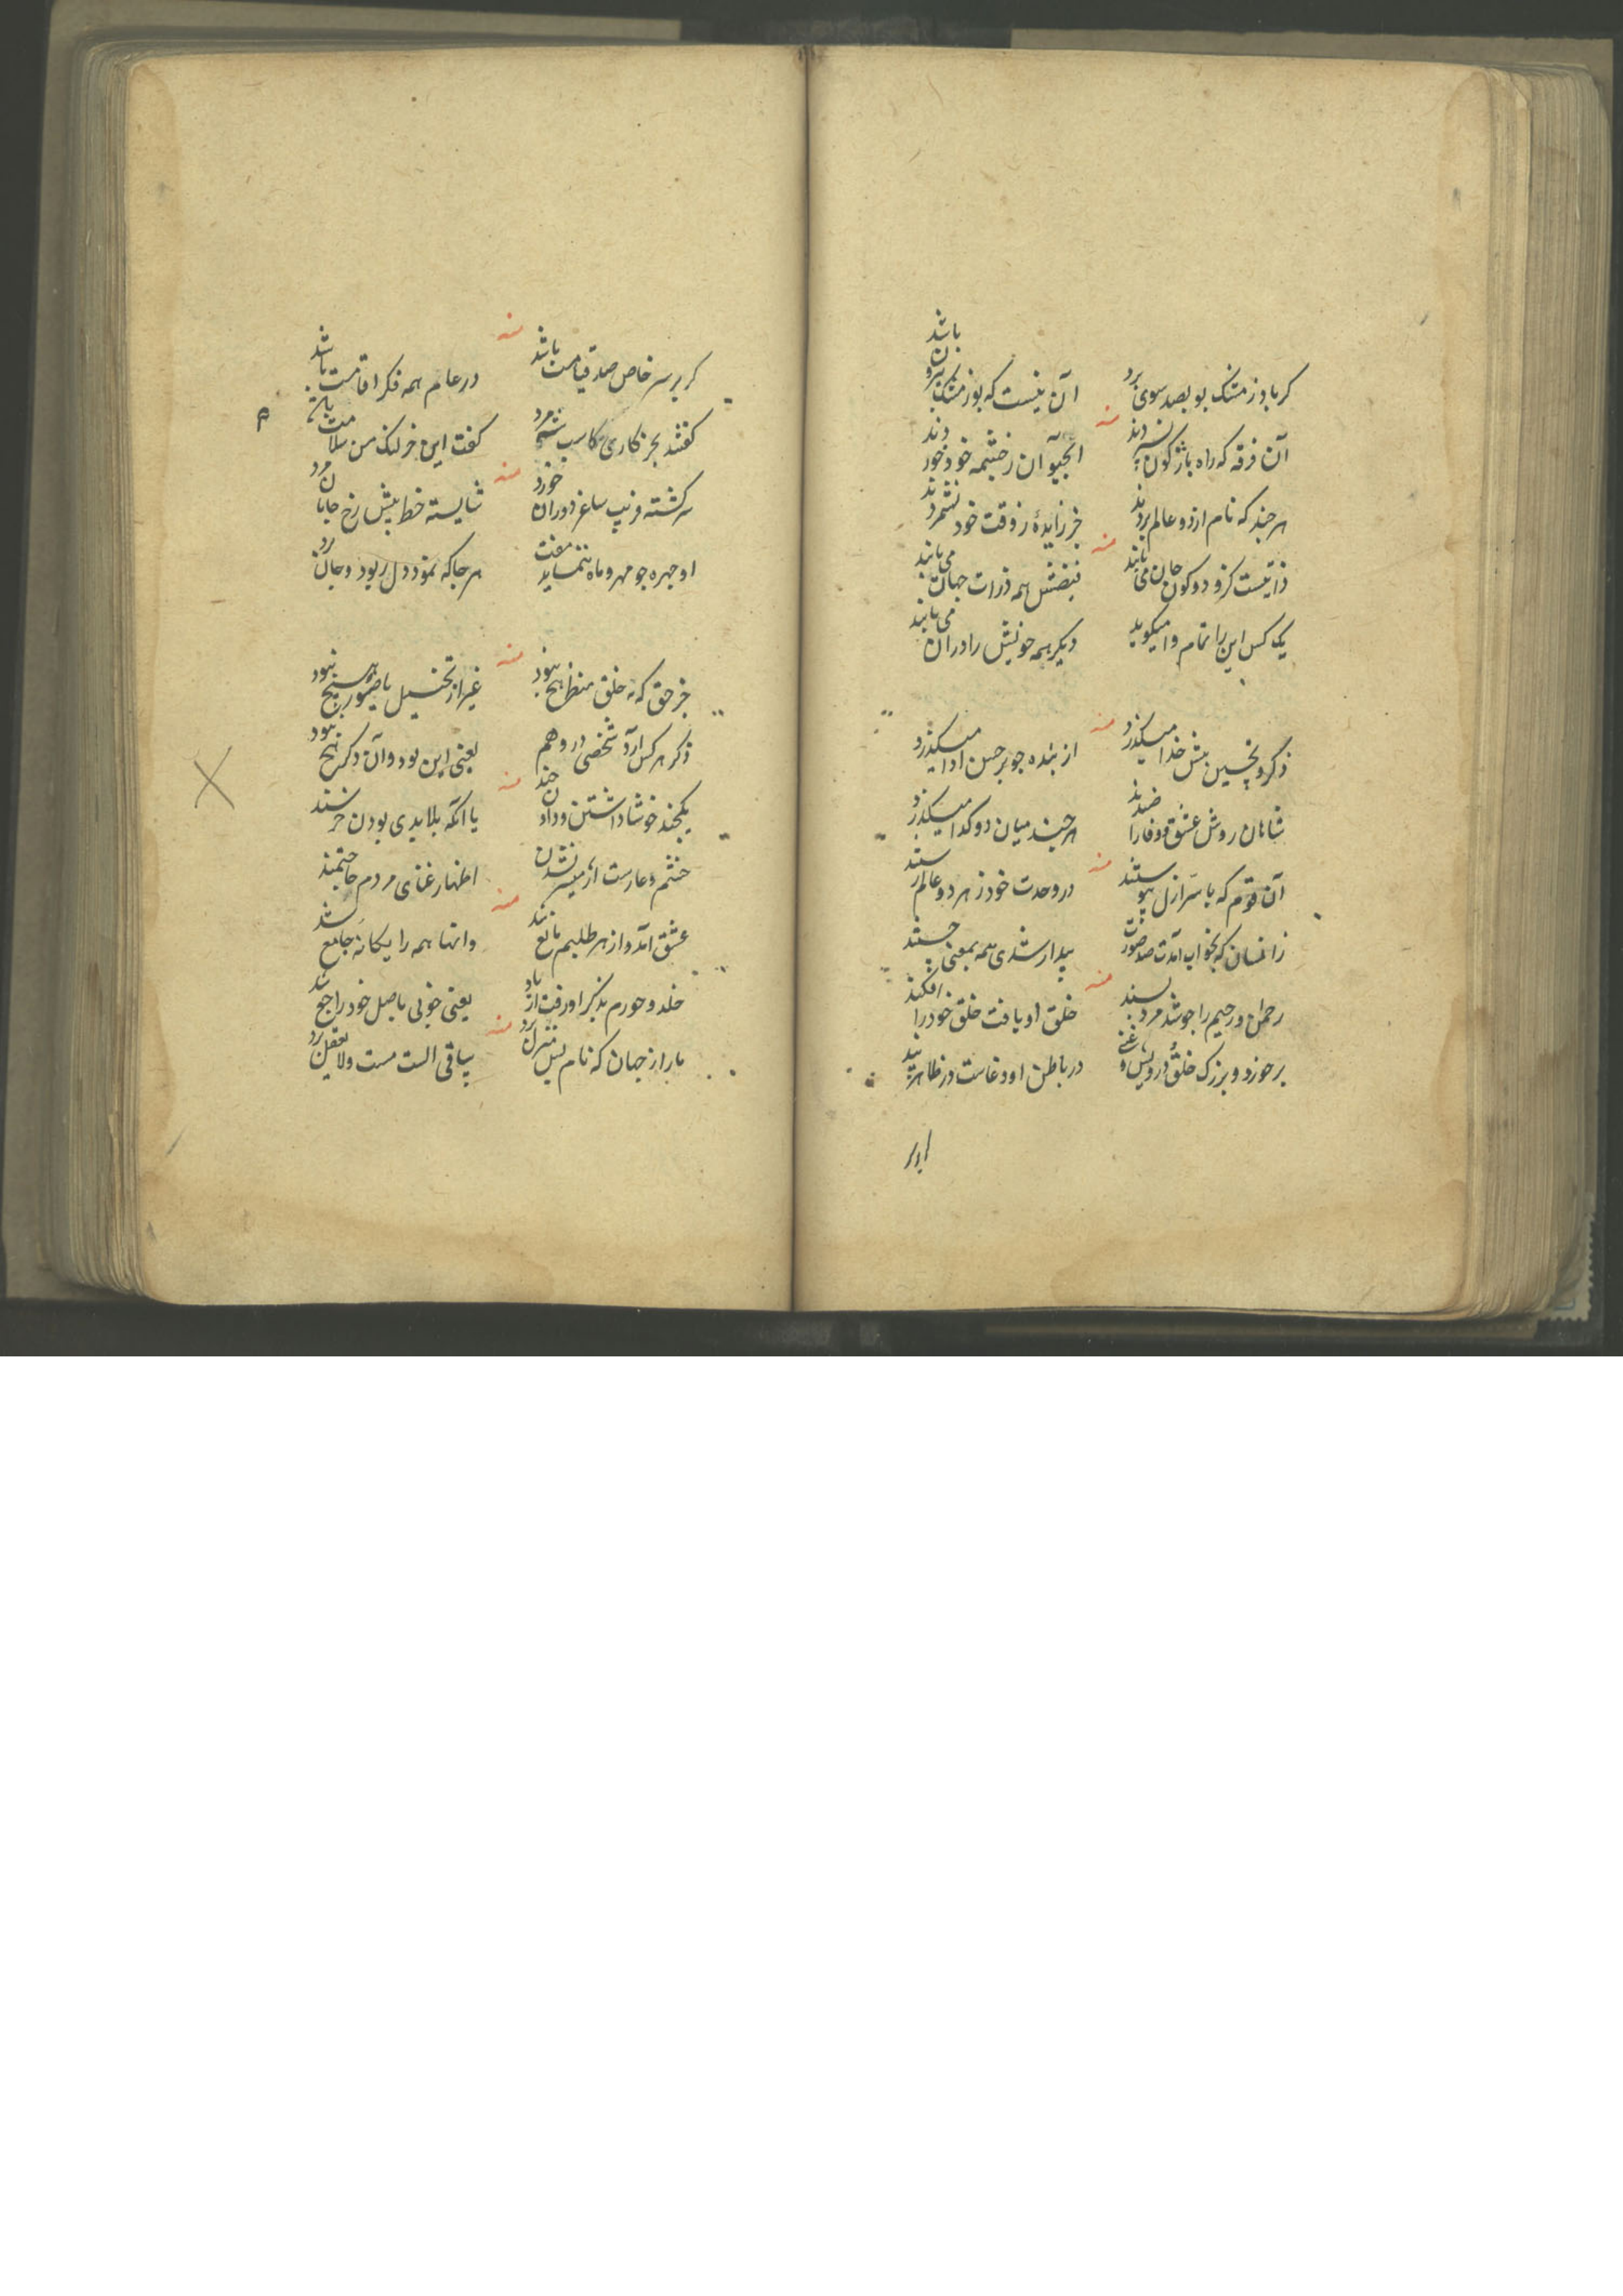 کر باد ز مشک بو بصد سوی برد آن نیست که بو ز مشک بیرون باشد
منه
آن فرقه که راه باژکون نسپردند آنجیوان ز چشمه خود خوردند
هر چند که نام از دو عالم بردند جز زایدهٔ ز وقت خود نشمردند
منه
ذاتیست کزو دو کون جان می یابند فیضش همه ذرات جهان می یابند
یک کس این را تمام وا میکوید دیکر همه خویش را در آن می یابند
منه
ذکر و تحسین بیش خدا میکذرد از بنده جو بر حسن ادا میکذرد
شاهان روش عشق و وفا را ضدند هر چند میان دو کدا میکذرد
منه
آن قوم که با سر ازل پیوستند در وحدت خود ز هر دو عالم رستند
زانسان که بخواب آمدت صد صورت بیدار شدی همه بمعنی جستند
منه
رحمن و رحیم را جو شد مرد بسند خلق او یافت خلق خود را افکند
بر خورد و بزرک خلق و درویش و غنی در باطن او دعاست در ظاهر پند
ابرار
کر بر سر خاص صد قیامت باشد در عام همه فکر اقامت باشد
منه
کفتند بجز کاری کاسب شخی مرد کفت این خر لنک من سلامت باشد
سرکشته فریب ساغر دوران خورد شایسته خط بیش رخ جانان مرد
منه
او جهره جو مهر و ماه ننماید مفت هر جا که نمود دل ربود و جان برد
منه
جز حق که خلق منظر هیچ نبود غیر از تخییل یا صور سنج نبود
ذکر هر کس آرد شخصی در وهم یعنی این بود و آن دکر هیچ نبود
منه
یکچند خوشا داشتن و دادن چند یا آنکه بلا بدی بودن خرسند
خشم و عارست از میسر نشدن اظهار غنای مردم حاجتمند
منه
عشق آمد و از هر طلبیم مانع شد وانها همه را یکانه جامع شد
خلد و حورم بذکر او رفت از یاد یعنی خوبی باصل خود راجع شد
منه
ما را از جهان که نام بس منزل برد ساقی الست مست و لا یعقل برد